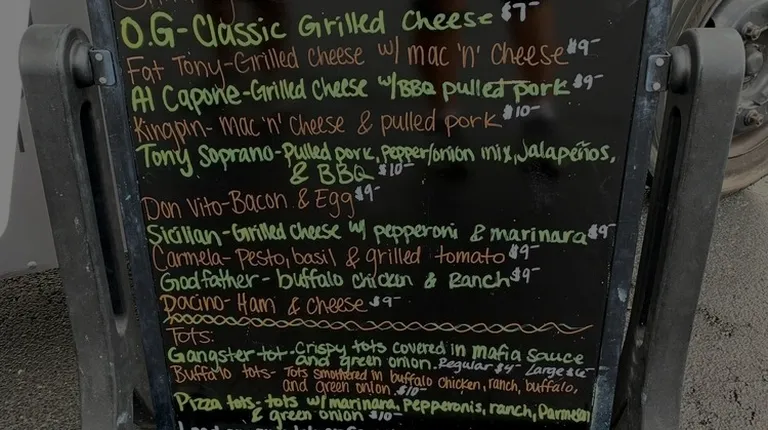 O.G-Classic Grilled Cheese $7-
Fat Tony-Grilled cheese w/ mac 'n' cheese $9-
Al Capone-Grilled cheese w/BBQ pulled pork $9-
Kingpin- mac 'n' cheese & pulled pork $10-
Tony Soprano-Pulled pork, pepper/onion mix, Jalapeños,
& BBQ $10-
Don Vito-Bacon & Egg $9-
Sicilian-Grilled cheese w/ pepperoni & marinara $9-
Carmela- Pesto, basil & grilled tomato $9-
Godfather- buffalo chicken & Ranch $9-
Pacino- Ham & cheese $9-
Tots:
Gangster tot-Crispy tots covered in mafia sauce
and green onion. Regular $4- Large $6-
Buffalo tots- Tots smothered in buffalo chicken, ranch, buffalo,
and green onion $10-
Pizza tots- tots w/ marinara, Pepperonis, ranch, Parmesan
& green onion $10-